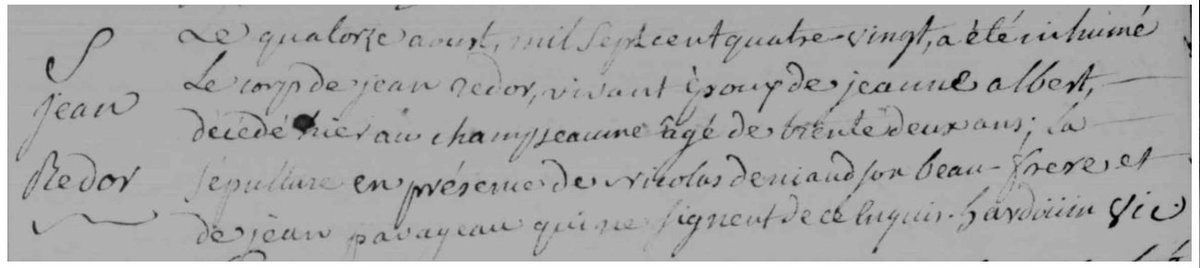 S
jean
Redor
Le quatorze aoust, mil sept cent quatre-vingt, a été inhumé
Le corps de jean redor, vivant époux de jeanne albert,
décédé hier au champjeaune âgé de trente deux ans; la
sépulture en présence de nicolas deniaud son beau-frere et
de jean pavageau qui ne signent de ce enquis. hardoüin Vic.